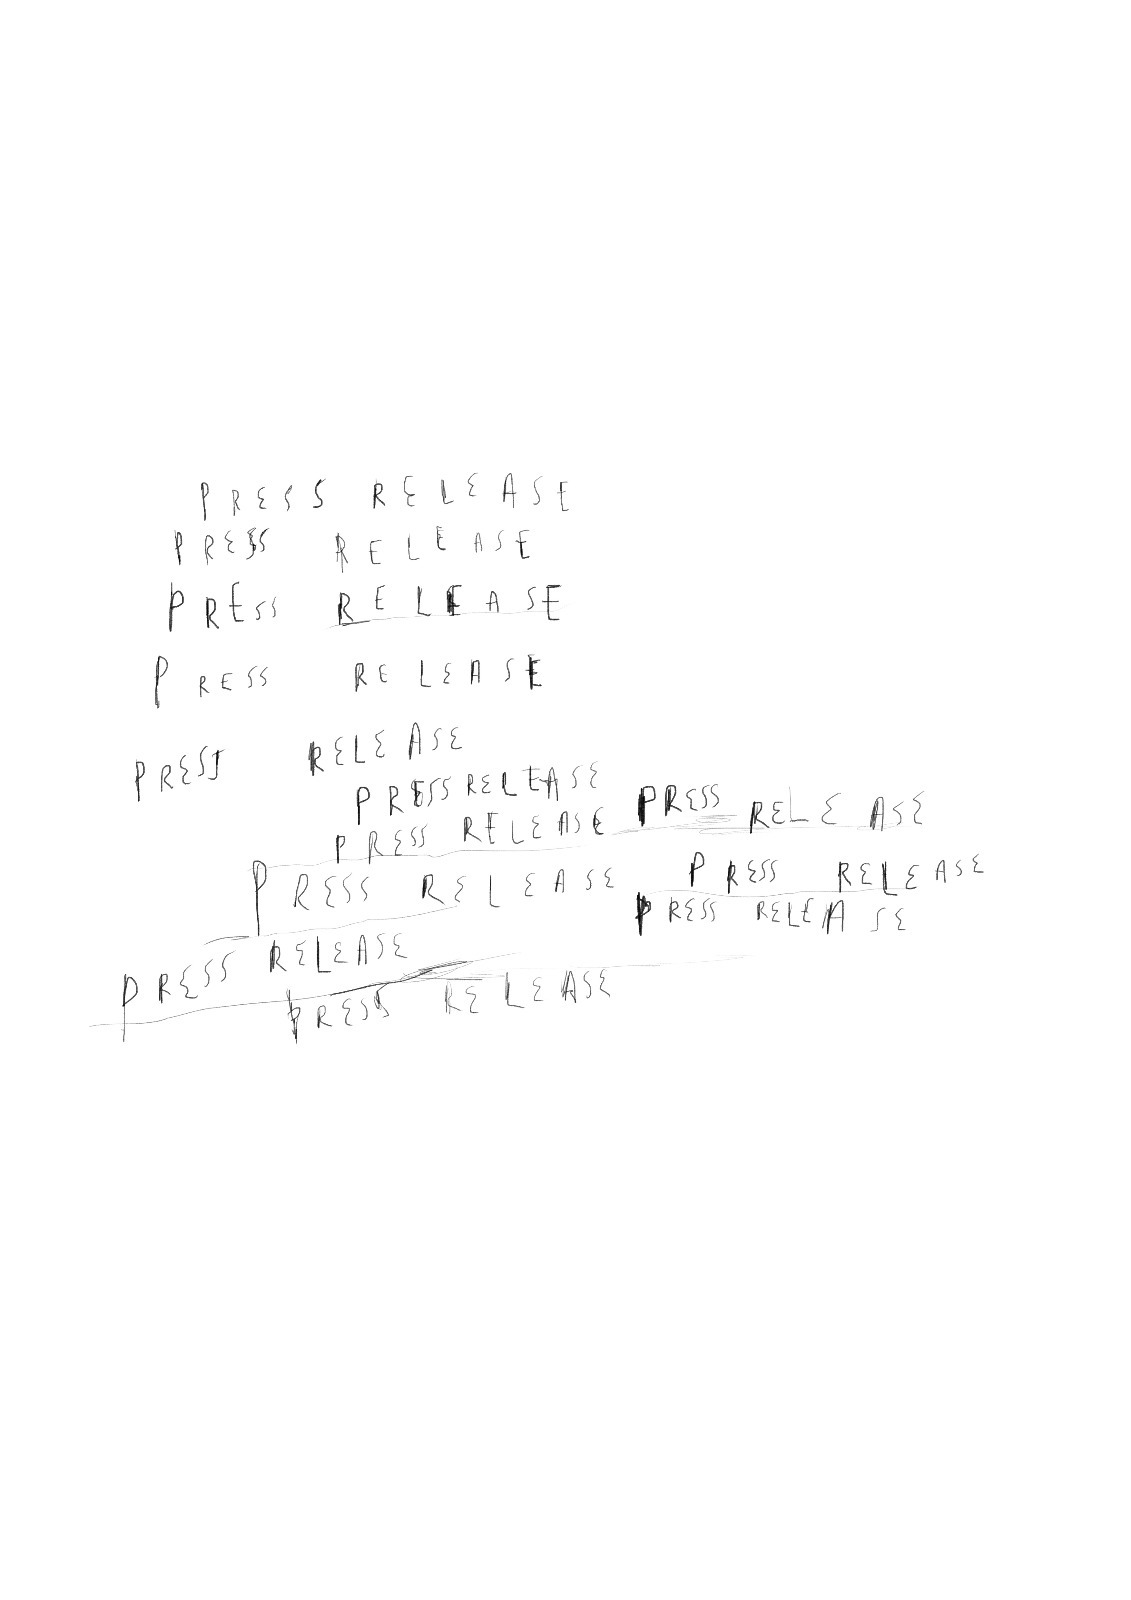 PRESS RELEASE
PRESS RELEASE
PRESS RELEASE
PRESS RELEASE
PRESS RELEASE
PRESS RELEASE
PRESS RELEASE
PRESS RELEASE
PRESS RELEASE
PRESS RELEASE
PRESS RELEASE
PRESS RELEASE
PRESS RELEASE